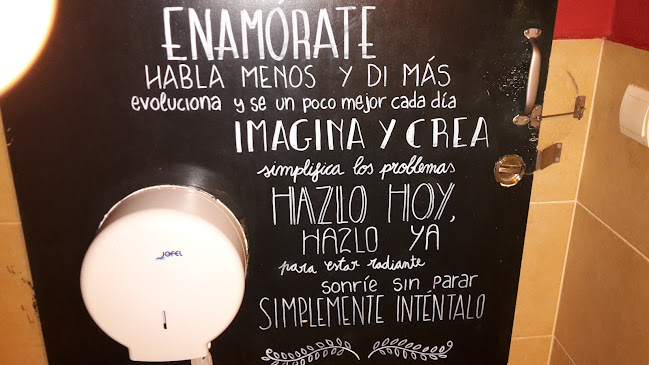 ENAMÓRATE
HABLA MENOS Y DI MÁS
evoluciona y se un poco mejor cada día
IMAGINA Y CREA
simplifica los problemas
HAZLO HOY,
HAZLO YA
para estar radiante
sonríe sin parar
SIMPLEMENTE INTÉNTALO
JOFEL